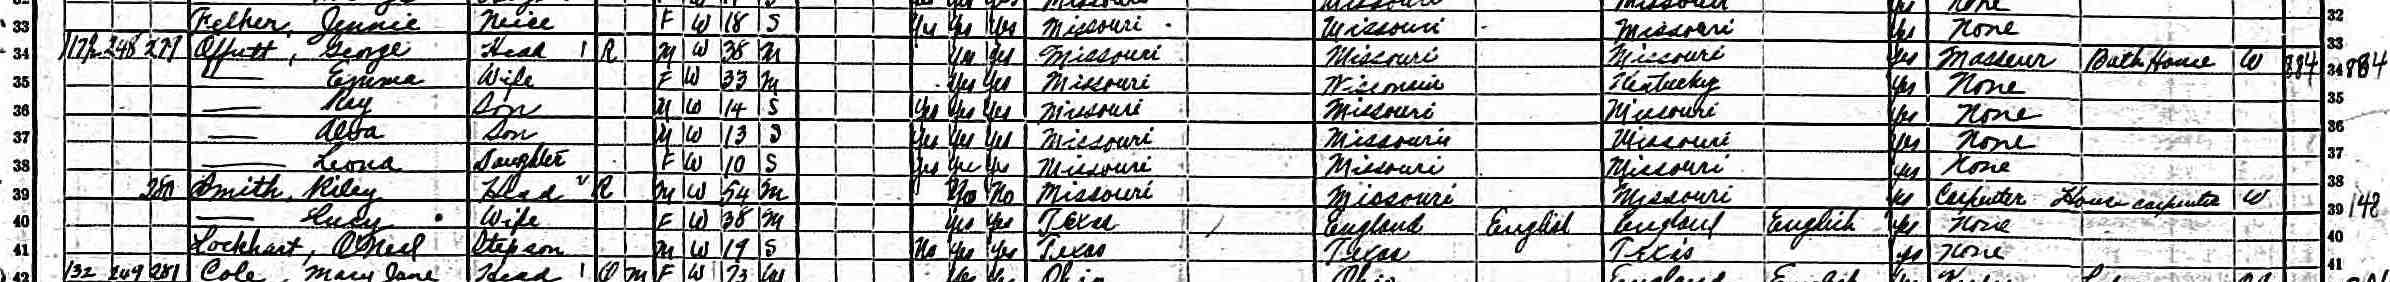 33 Felker, Jennie Neice F W 18 S Yes Yes Yes Missouri Missouri Missouri Yes None 32
34 248 279 Offutt, George Head 1 R M W 38 M Yes Yes Missouri Missouri Missouri Yes Masseur Bath House W 884 33
35 — Emma Wife F W 33 M Yes Yes Missouri Wisconsin Kentucky Yes None 34 884
36 — Ray Son M W 14 S Yes Yes Yes Missouri Missouri Missouri Yes None 35
37 — Alva Son M W 13 S Yes Yes Yes Missouri Missouri Missouri Yes None 36
38 — Leona Daughter F W 10 S Yes Yes Yes Missouri Missouri Missouri Yes None 37
39 280 Smith, Riley Head R M W 54 M No No Missouri Missouri Missouri Yes Carpenter House carpenter W 38
40 — Lucy Wife F W 38 M Yes Yes Texas England English England English Yes None 39 148
41 Lockhart, O'Neil Stepson M W 19 S No Yes Yes Texas Texas Texis Yes None 40
42 132 249 281 Cole, Mary Jane Head 1 O M F W 73 Ohio Ohio England English 41